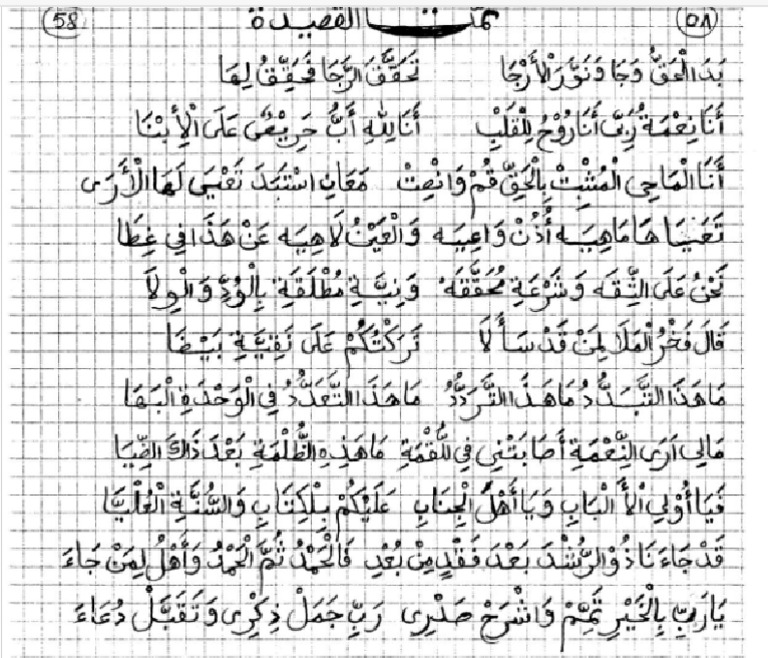 (58) تمت القصيدة (٥٨)
بَدَا الْحَقُّ وَجَا وَنَوَّرَ الأَرْجَا تَحَقَّقَ الرَّجَا فَحَقِّقْ لِهَا
أَنَا نِعْمَةُ رَبِّ أَنَا رُوْحُ لِلْقَلْبِ أَنَا لِلَّهِ أَبُّ حَرِيْصٌ عَلَى الْأِبْنَا
أَنَا الْمَاحِى الْمُثْبِتْ بِالْحَقِّ قُمْ وَانْصِتْ مَعَانِ اسْتَبَدَ تَعْيَى لَهَا الْأَرَى
تَعَنِيَا هَا مَاهِيَه أُذُنْ وَاعِيَه وَالْعَيْنُ لَاهِيَه عَنْ هَذَا فِي غِطَا
نَحْنُ عَلَى الثِّقَه وَشَرْعَةِ مُحَقَّقَه وَنِيَّةِ مُطْلَقَةِ بِالْوُدِّ وَالْوِلَا
قَالَ فَخْرُ الْمَلَا لِمَنْ قَدْ سَأَلَا تَرَكْتُكُمْ عَلَى نَقِيَّةِ بَيْضَا
مَا هَذَا التَّبَدُّدُ مَا هَذَا التَّرَدُّدُ مَا هَذَا التَّعَدُّدُ فِي الْوَحْدَةِ الْبَهَا
مَالِى اَرَى النِّعْمَةِ أَصَابَتْنِى فِي اللُّقْمَةِ مَا هَذِهِ الظُّلْمَةِ بَعْدَ ذَاكَ الضِّيَا
فَيَا أُوْلِي الْأَ لْبَابِ وَيَا أَهْلَ الْجِنَابِ عَلَيْكُمْ بِلْكِتَابِ وَالسُّنَّةِ الْعُلْيَا
قَدْ جَاءَنَا ذُوْ الرُّشْدَ بَعْدَ فَقْدٍ مِنْ بُعْدِ فَالْحَمْدُ ثُمَّ الْحَمْدُ وَأَهْلُ لِمَنْ جَاءَ
يَارَبِّ بِالْخَيْرِ تَمِّمْ وَاشْرَحْ صَدْرِى رَبِّ جَمَلْ ذِكْرِى وَتَقَبَّلْ دُعَاءَ